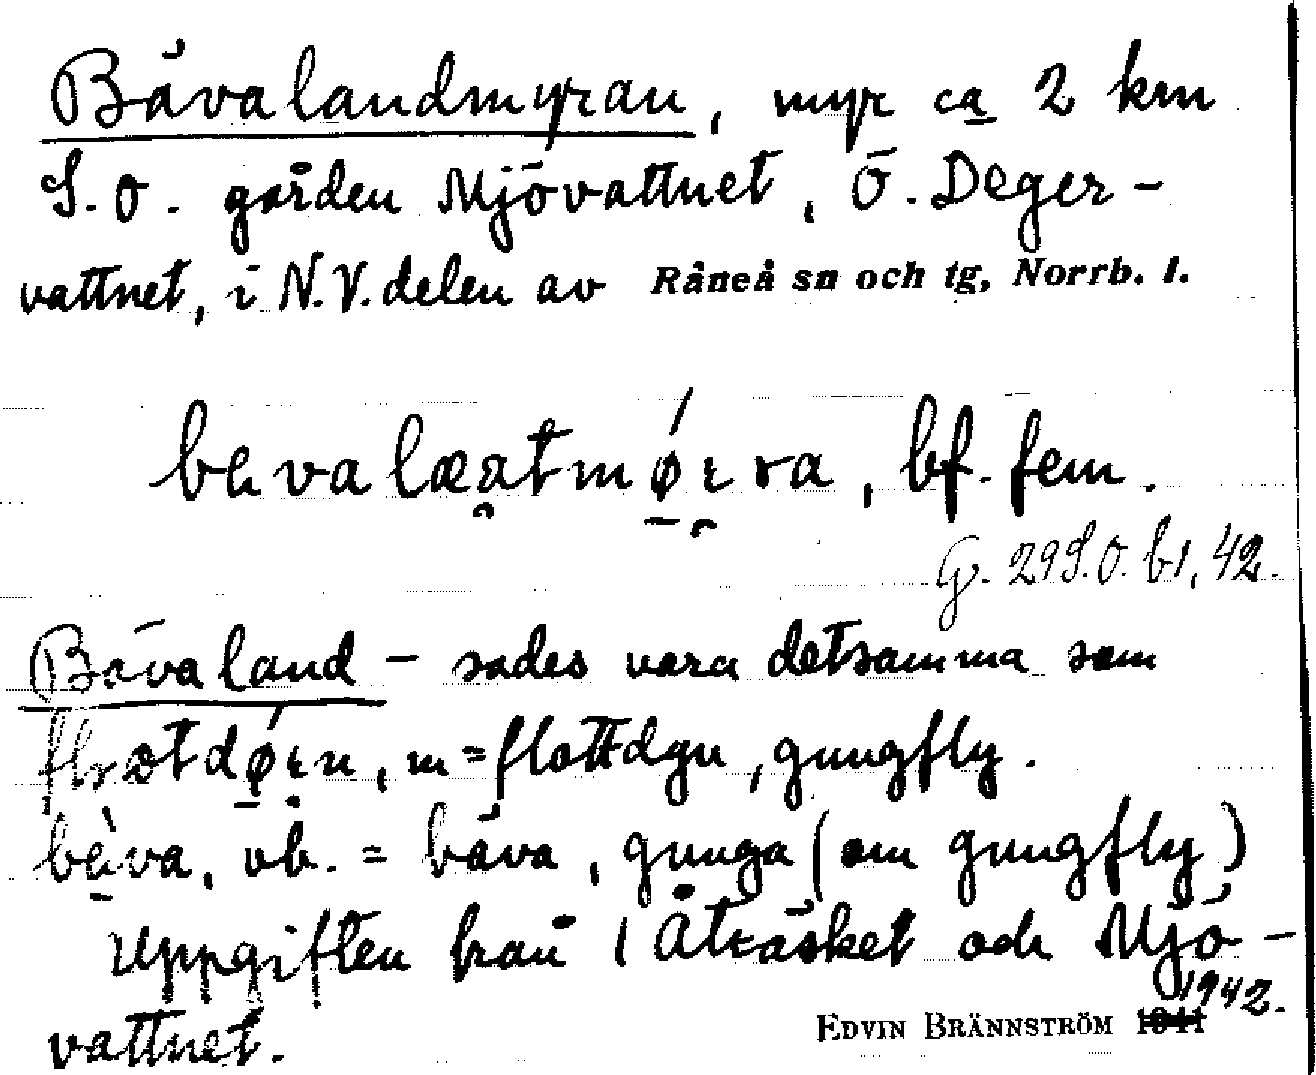 Bävalandmyran, myr ca 2 km
S.O. gården Mjövattnet, Ö. Deger-
vattnet, i N.V. delen av Råneå sn och tg, Norrb. l.
bf. fem.
G. 29 S.O. b1, 42.
Bävaland – sades vara detsamma som
, m = flottdyn, gungfly.
vb. = bäva, gunga (om gungfly)
Uppgiften från Åträsket och Mjö-
vattnet.
1942.
EDVIN BRÄNNSTRÖM 1941